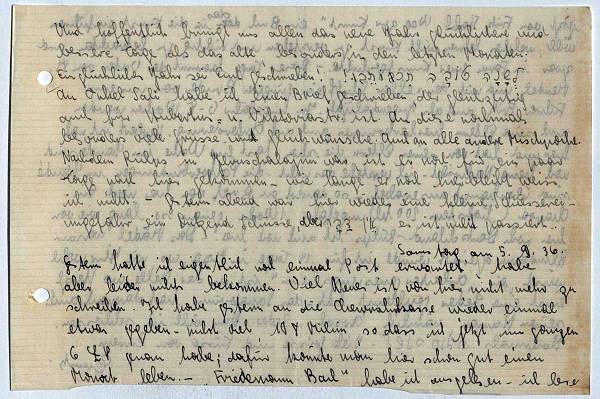 Und hoffentlich bringt uns allen das neue Jahr glücklichere und
bessere Tage als das alte besonders in den letzten Monaten.
Ein glückliches Jahr sei Euch geschrieben! לשנה טובה תכתבו!
An Onkel Sali habe ich einen Brief geschrieben der gleichzeitig
auch für Hubertus- u. Viktoriastr. ist an diese nochmal
besonders viele Grüsse und Glückwünsche. Auch an alle andere Mischpoche.
Nachdem in Jeruschalajim war, ist er noch für ein paar
Tage nach hier gekommen - wie lange er noch hierbleibt weiss
ich nicht - Gestern abend war hier wieder eine kleine Schiesserei -
ungefähr ein Dutzend Schüsse, aber es ist nichts passiert. -
Samstag am 5. 9. 36.
Gestern hatte ich eigentlich noch einmal Post erwartet, habe
aber leider nichts bekommen. Viel Neues ist von hier nicht mehr zu
schreiben. Ich habe gestern an die wieder einmal
etwas gegeben - nicht viel Milim so dass ich jetzt im ganzen
6 £P genau habe; dafür könnte man hier schon gut einen
Monat leben. - „Friedemann Bach" habe ich ausgelesen - ich lese